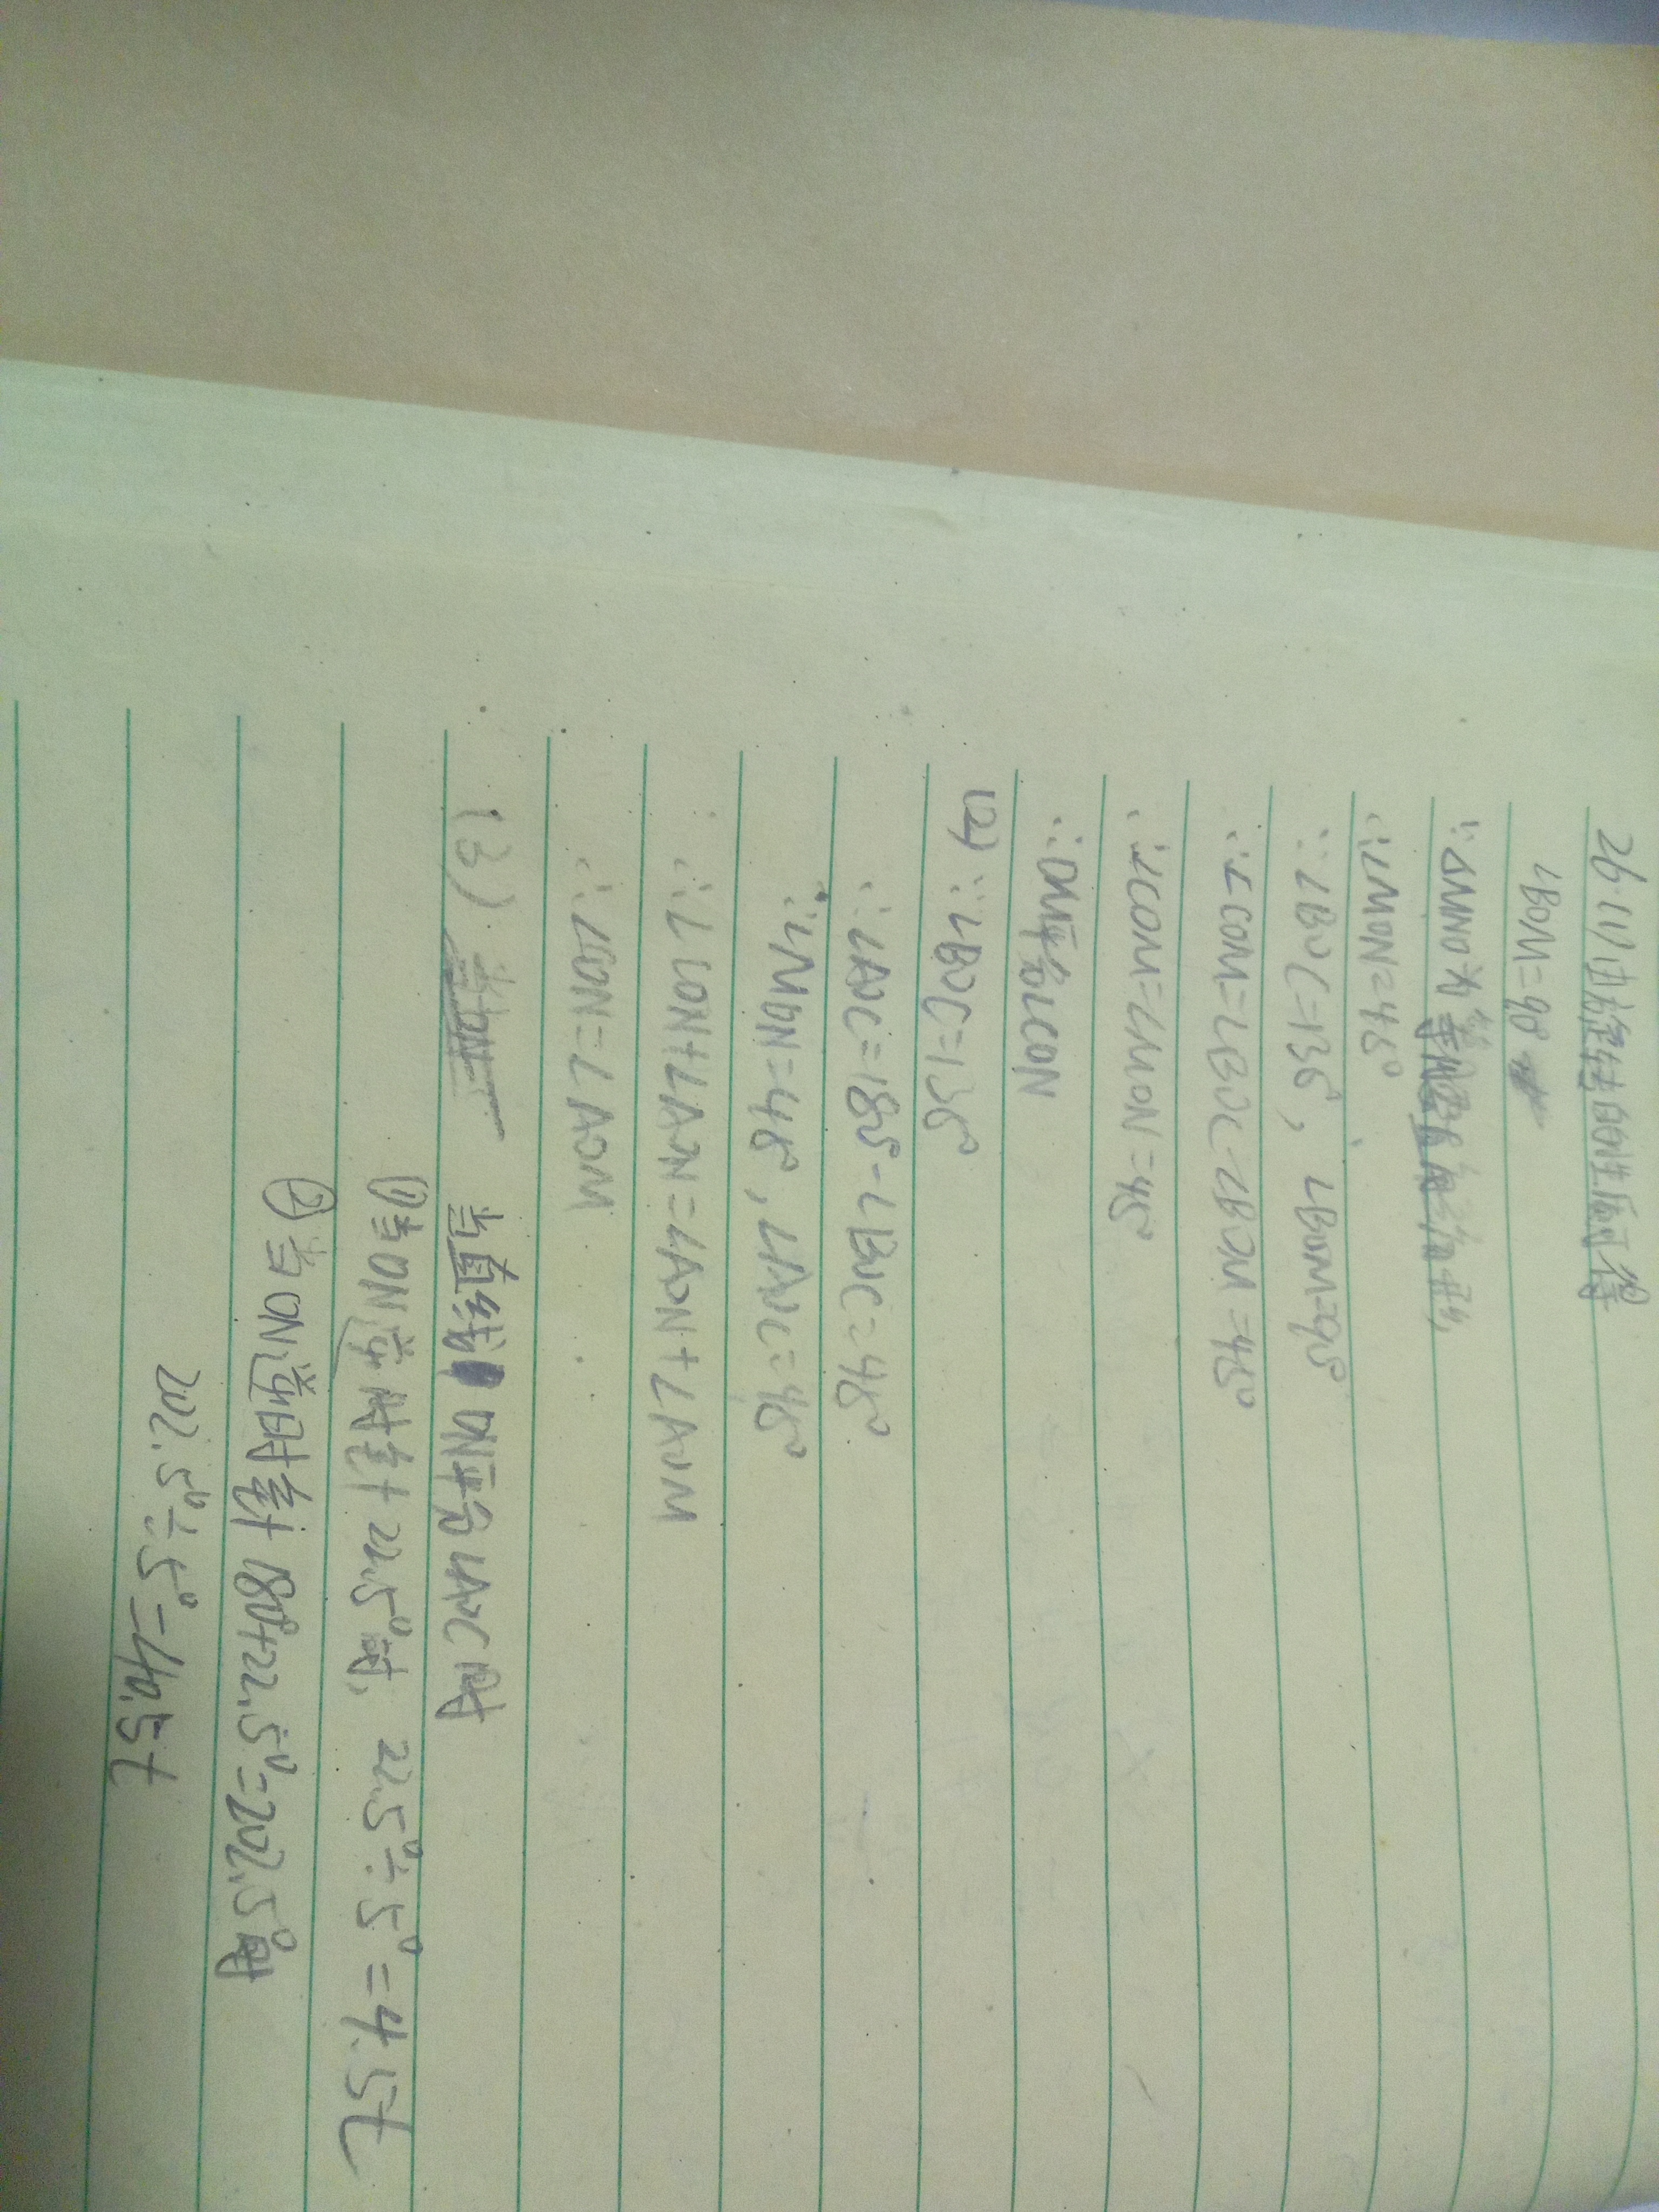 26.(1)由旋转的性质可得
∠BOM=90°
∵△MNO为等腰直角三角形,
∴∠MON=45°
∵∠BOC=135°, ∠BOM=90°
∴∠COM=∠BOC-∠BOM=45°
∴∠COM=∠MON=45°
∴OM平分∠CON
(2) ∵∠BOC=135°
∴∠AOC=180°-∠BOC=45°
∵∠MON=45°, ∠AOC=45°
∴∠CON+∠AON=∠AON+∠AOM
∴∠CON=∠AOM
(3) 当直线ON平分∠AOC时
①当ON逆时针22.5°时, 22.5°÷5°=4.5t
②当ON逆时针180°+22.5°=202.5°时
202.5°÷5°=40.5t